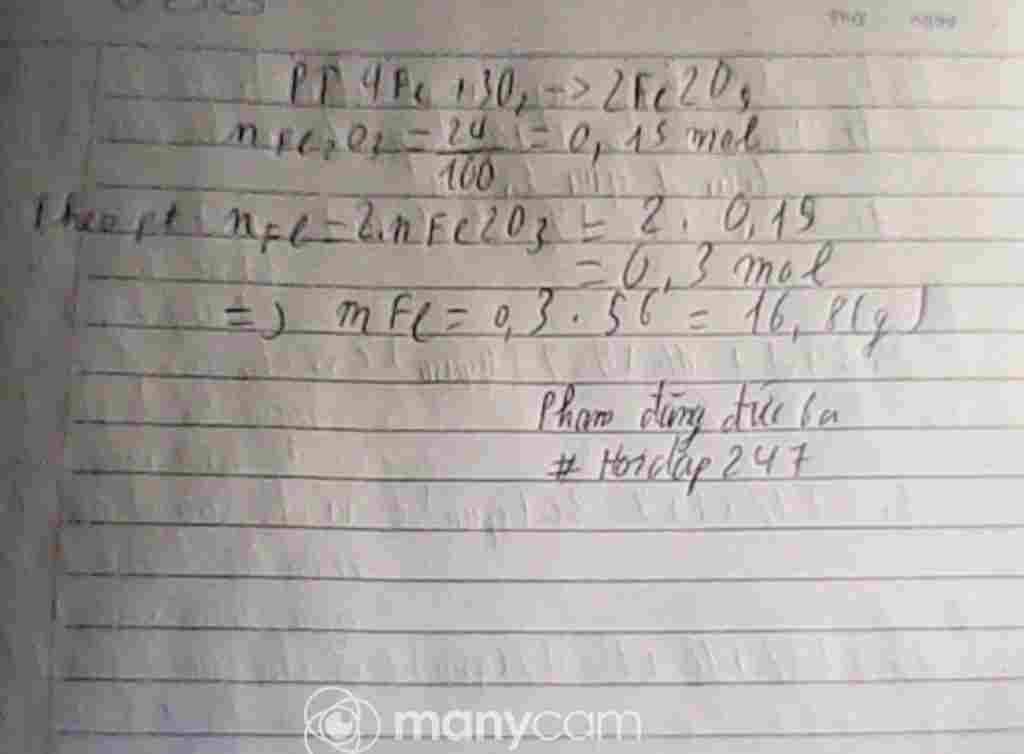 PT 4Fe + 3O2 -> 2Fe2O3
nFe2O3 = 24/160 = 0,15 mol
Theo pt nFe = 2.nFe2O3 = 2 . 0,15
= 0,3 mol
=> mFe = 0,3 . 56 = 16,8(g)
Phạm dũng đức
# Hoidap 247
manycam